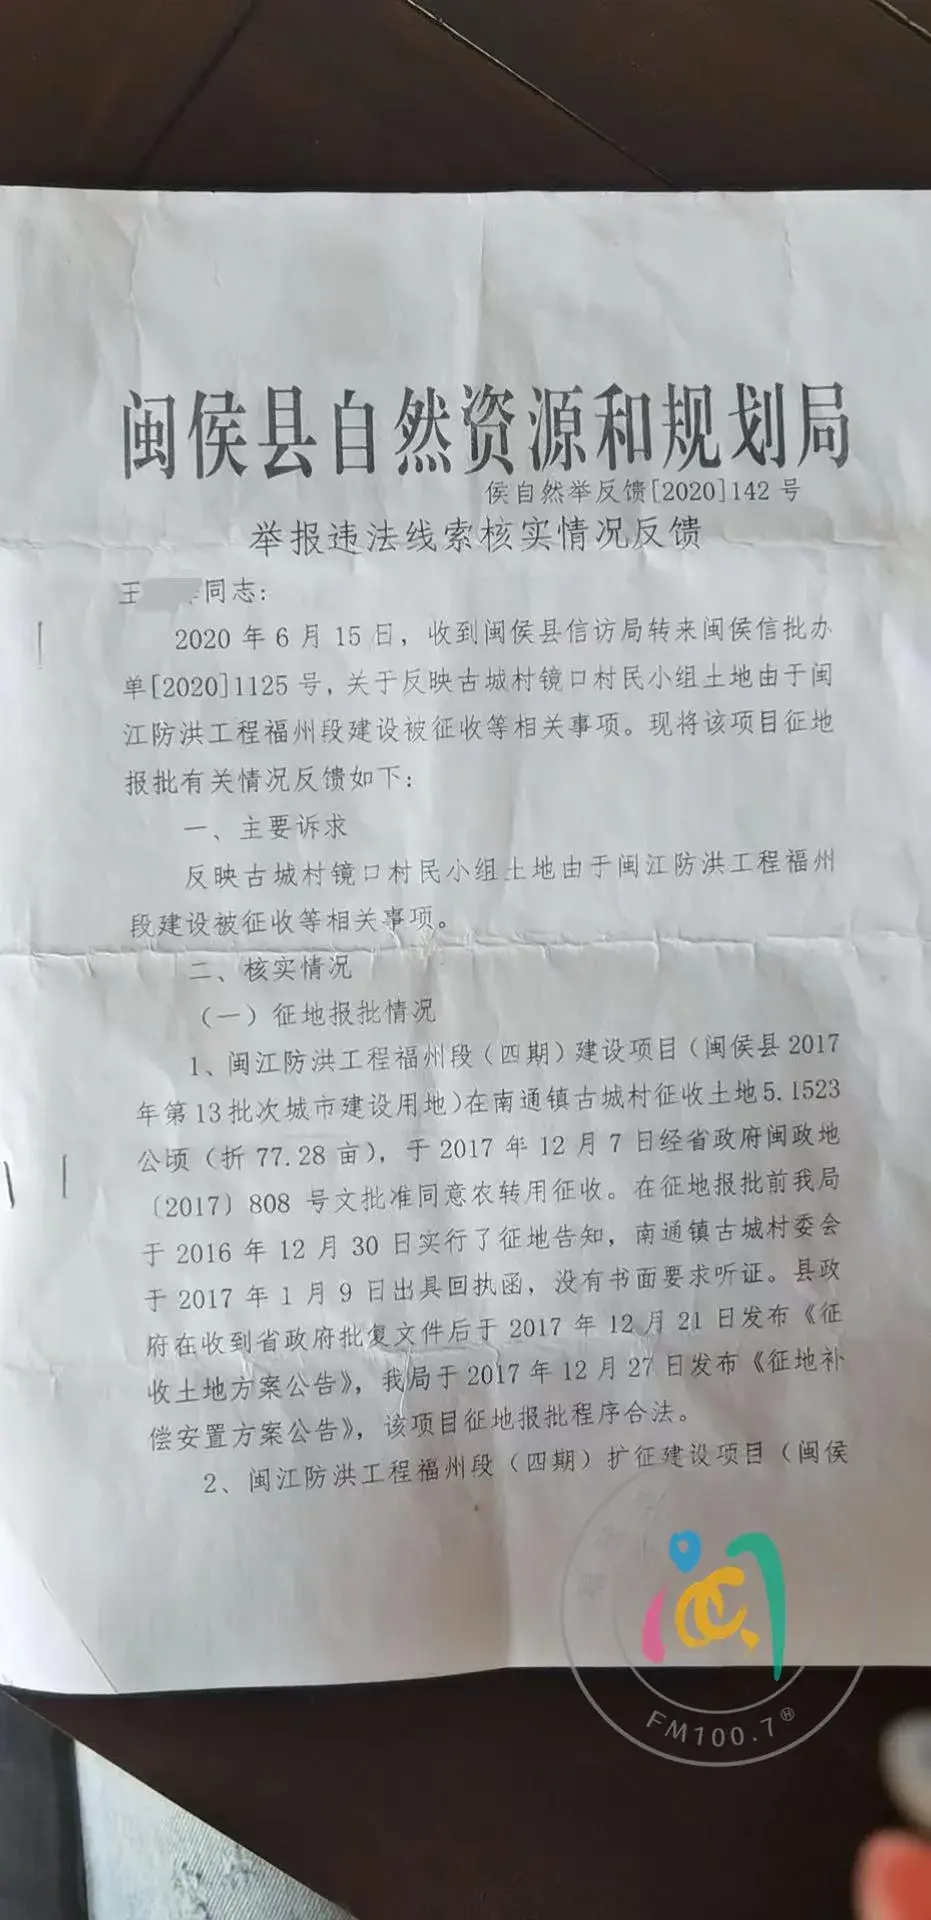 闽侯县自然资源和规划局
侯自然举反馈[2020]142号
举报违法线索核实情况反馈
王 同志：
2020年6月15日，收到闽侯县信访局转来闽侯信批办
单[2020]1125号，关于反映古城村镜口村民小组土地由于闽
江防洪工程福州段建设被征收等相关事项。现将该项目征地
报批有关情况反馈如下：
一、主要诉求
反映古城村镜口村民小组土地由于闽江防洪工程福州
段建设被征收等相关事项。
二、核实情况
（一）征地报批情况
1、闽江防洪工程福州段（四期）建设项目（闽侯县2017
年第13批次城市建设用地）在南通镇古城村征收土地5.1523
公顷（折77.28亩），于2017年12月7日经省政府闽政地
〔2017〕808号文批准同意农转用征收。在征地报批前我局
于2016年12月30日实行了征地告知，南通镇古城村委会
于2017年1月9日出具回执函，没有书面要求听证。县政
府在收到省政府批复文件后于2017年12月21日发布《征
收土地方案公告》，我局于2017年12月27日发布《征地补
偿安置方案公告》，该项目征地报批程序合法。
2、闽江防洪工程福州段（四期）扩征建设项目（闽侯
FM100.7